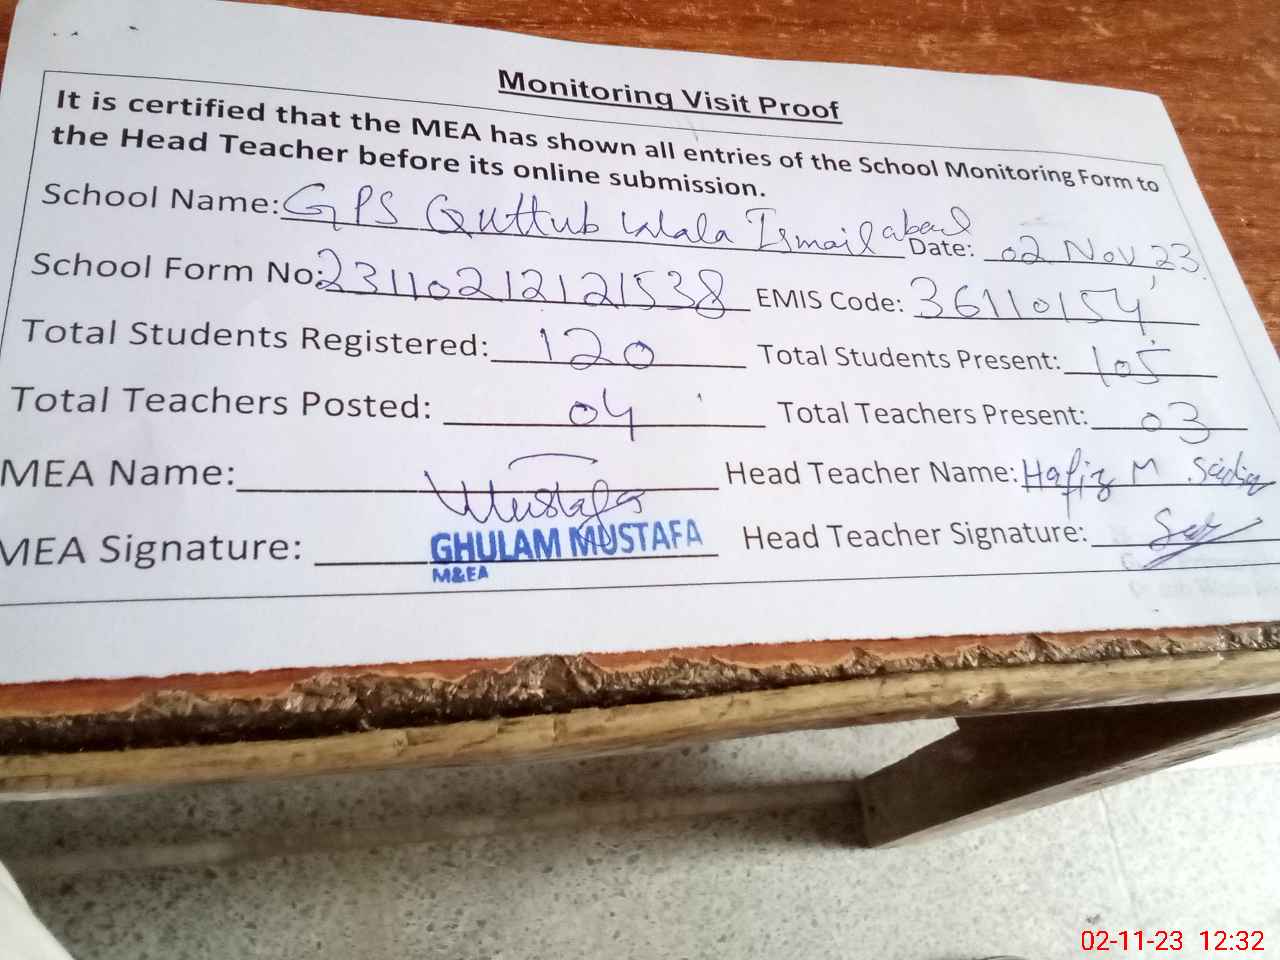 Monitoring Visit Proof
It is certified that the MEA has shown all entries of the School Monitoring Form to
the Head Teacher before its online submission.
School Name: GPS Quttub Wala Ismailabad Date: 02 Nov, 23.
School Form No: 23110212121538 EMIS Code: 36110154
Total Students Registered: 120 Total Students Present: 105
Total Teachers Posted: 04 Total Teachers Present: 03
MEA Name: Mustafa Head Teacher Name: Hafiz M
MEA Signature: GHULAM MUSTAFA Head Teacher Signature:
M&EA
02-11-23 12:32